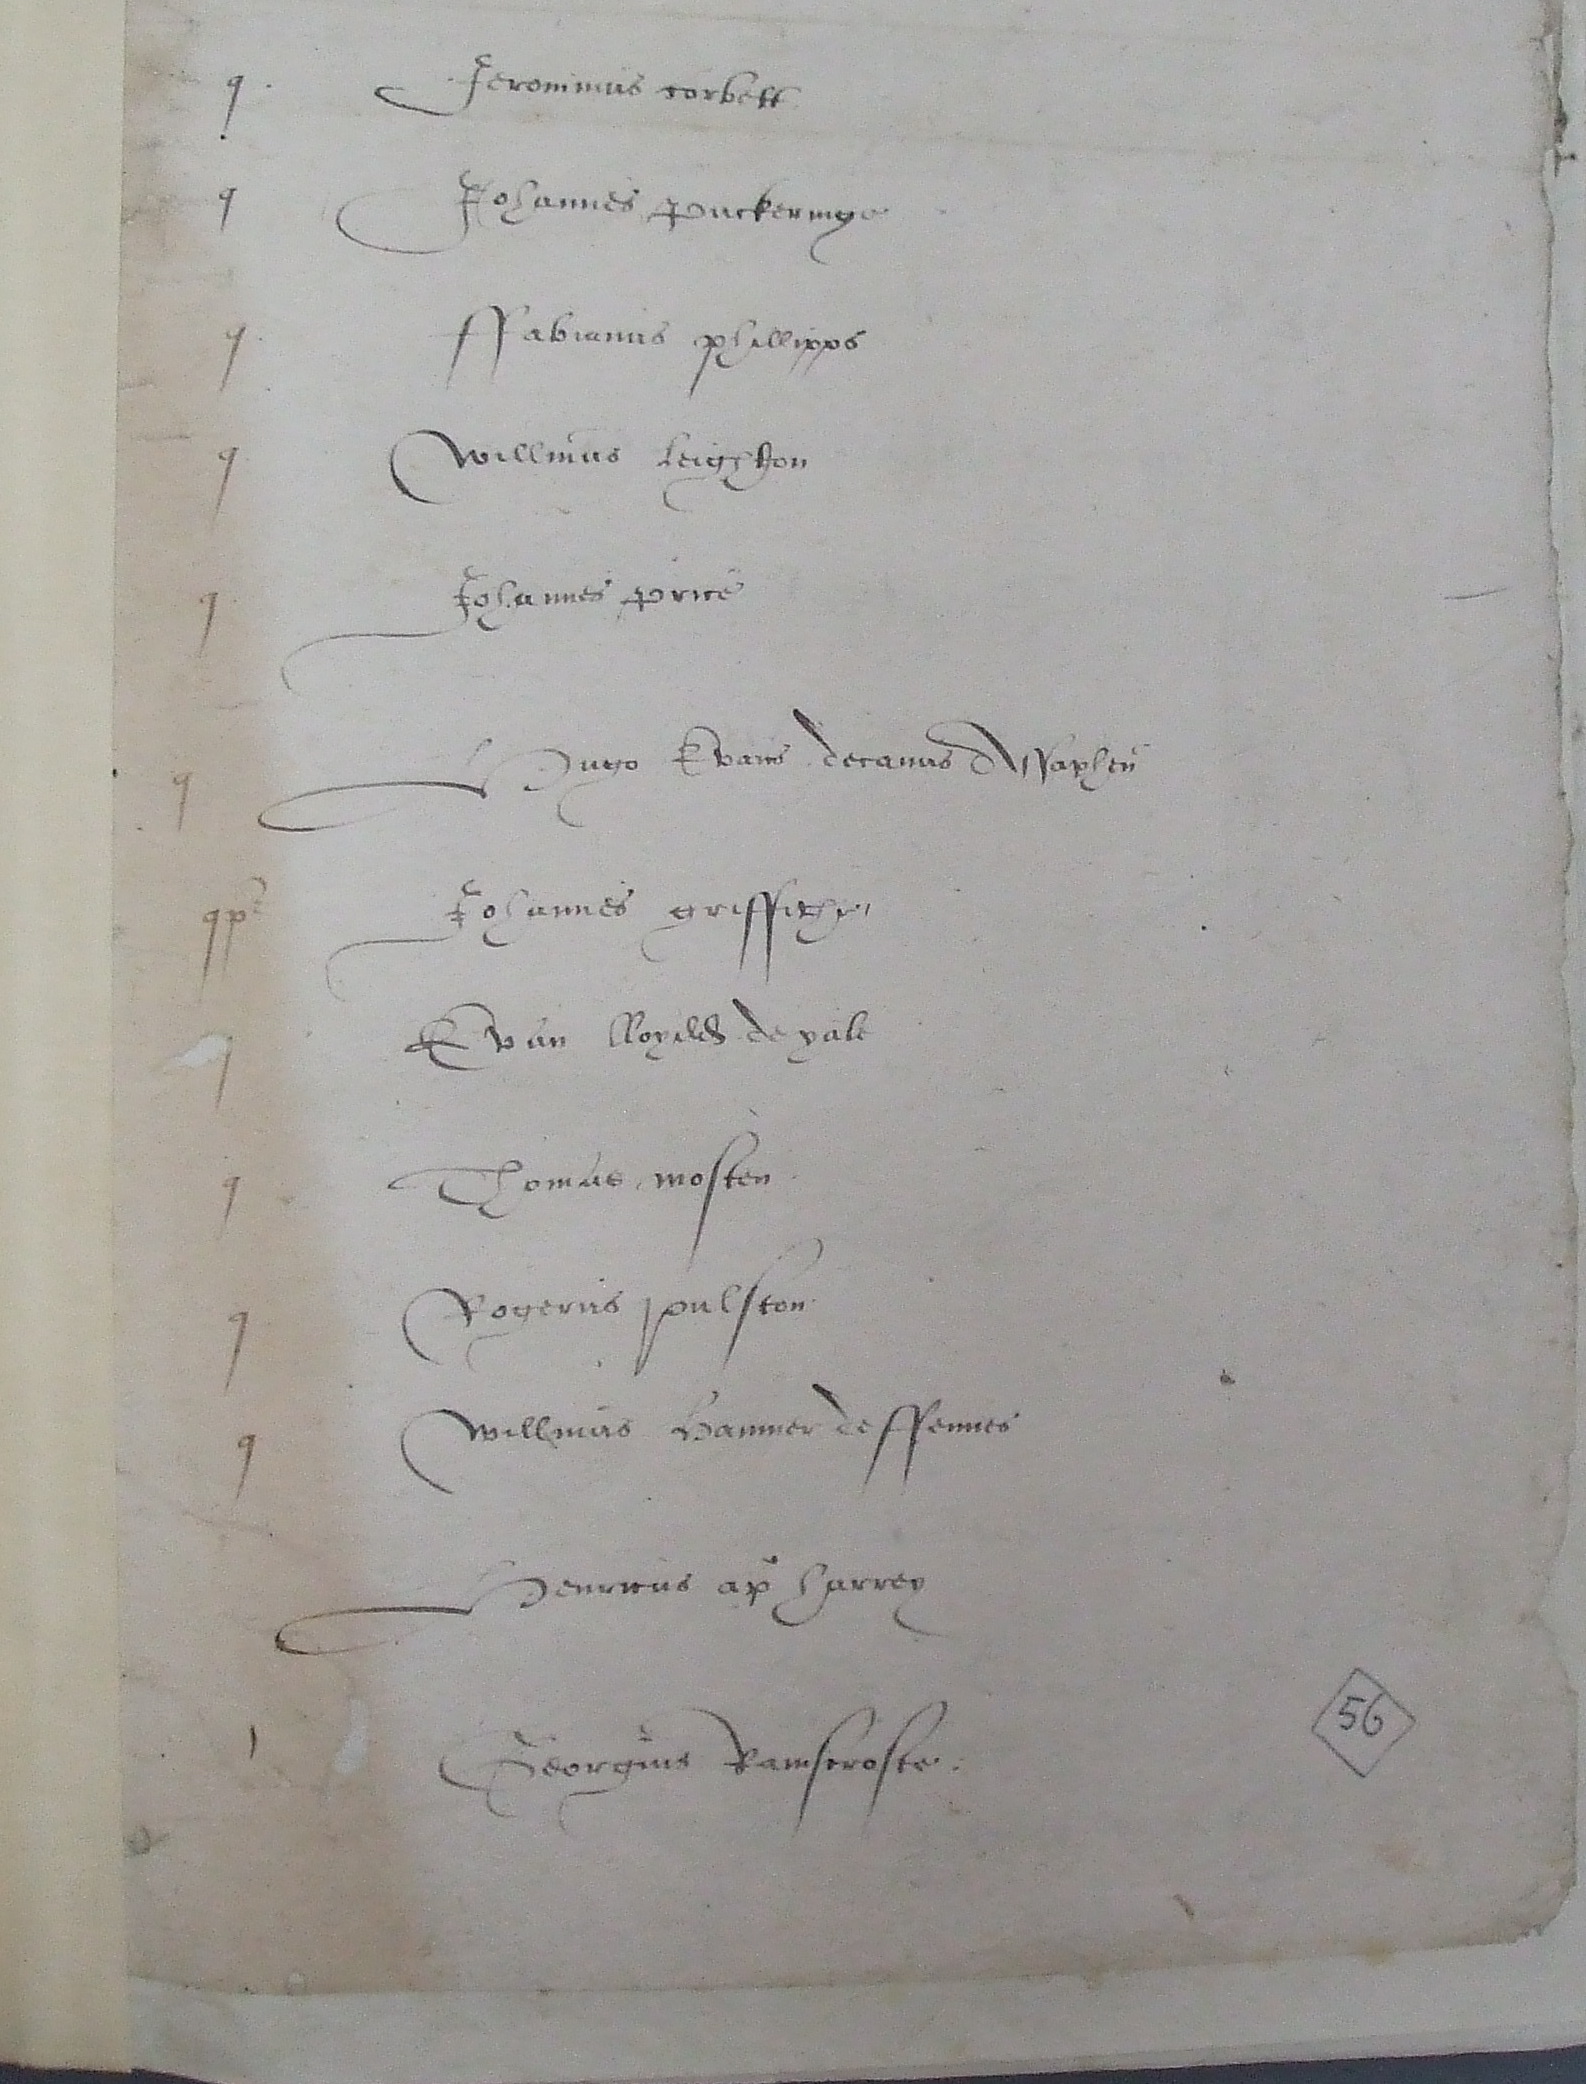 q Jeronimus Corbett
q Johannes Puckeringe
q ffabianus Phillipps
q Willmus Leighton
q Johannes Price
q Hugo Evans decanus Assaphen
qpr Johannes Griffithe
q Evan lloydd de yale
q Thomas mosten
q Rogerus pulston
q Willmus Hanmer de ffennes
Henricus ap Harrey
Georgius Ravnscrofte
56